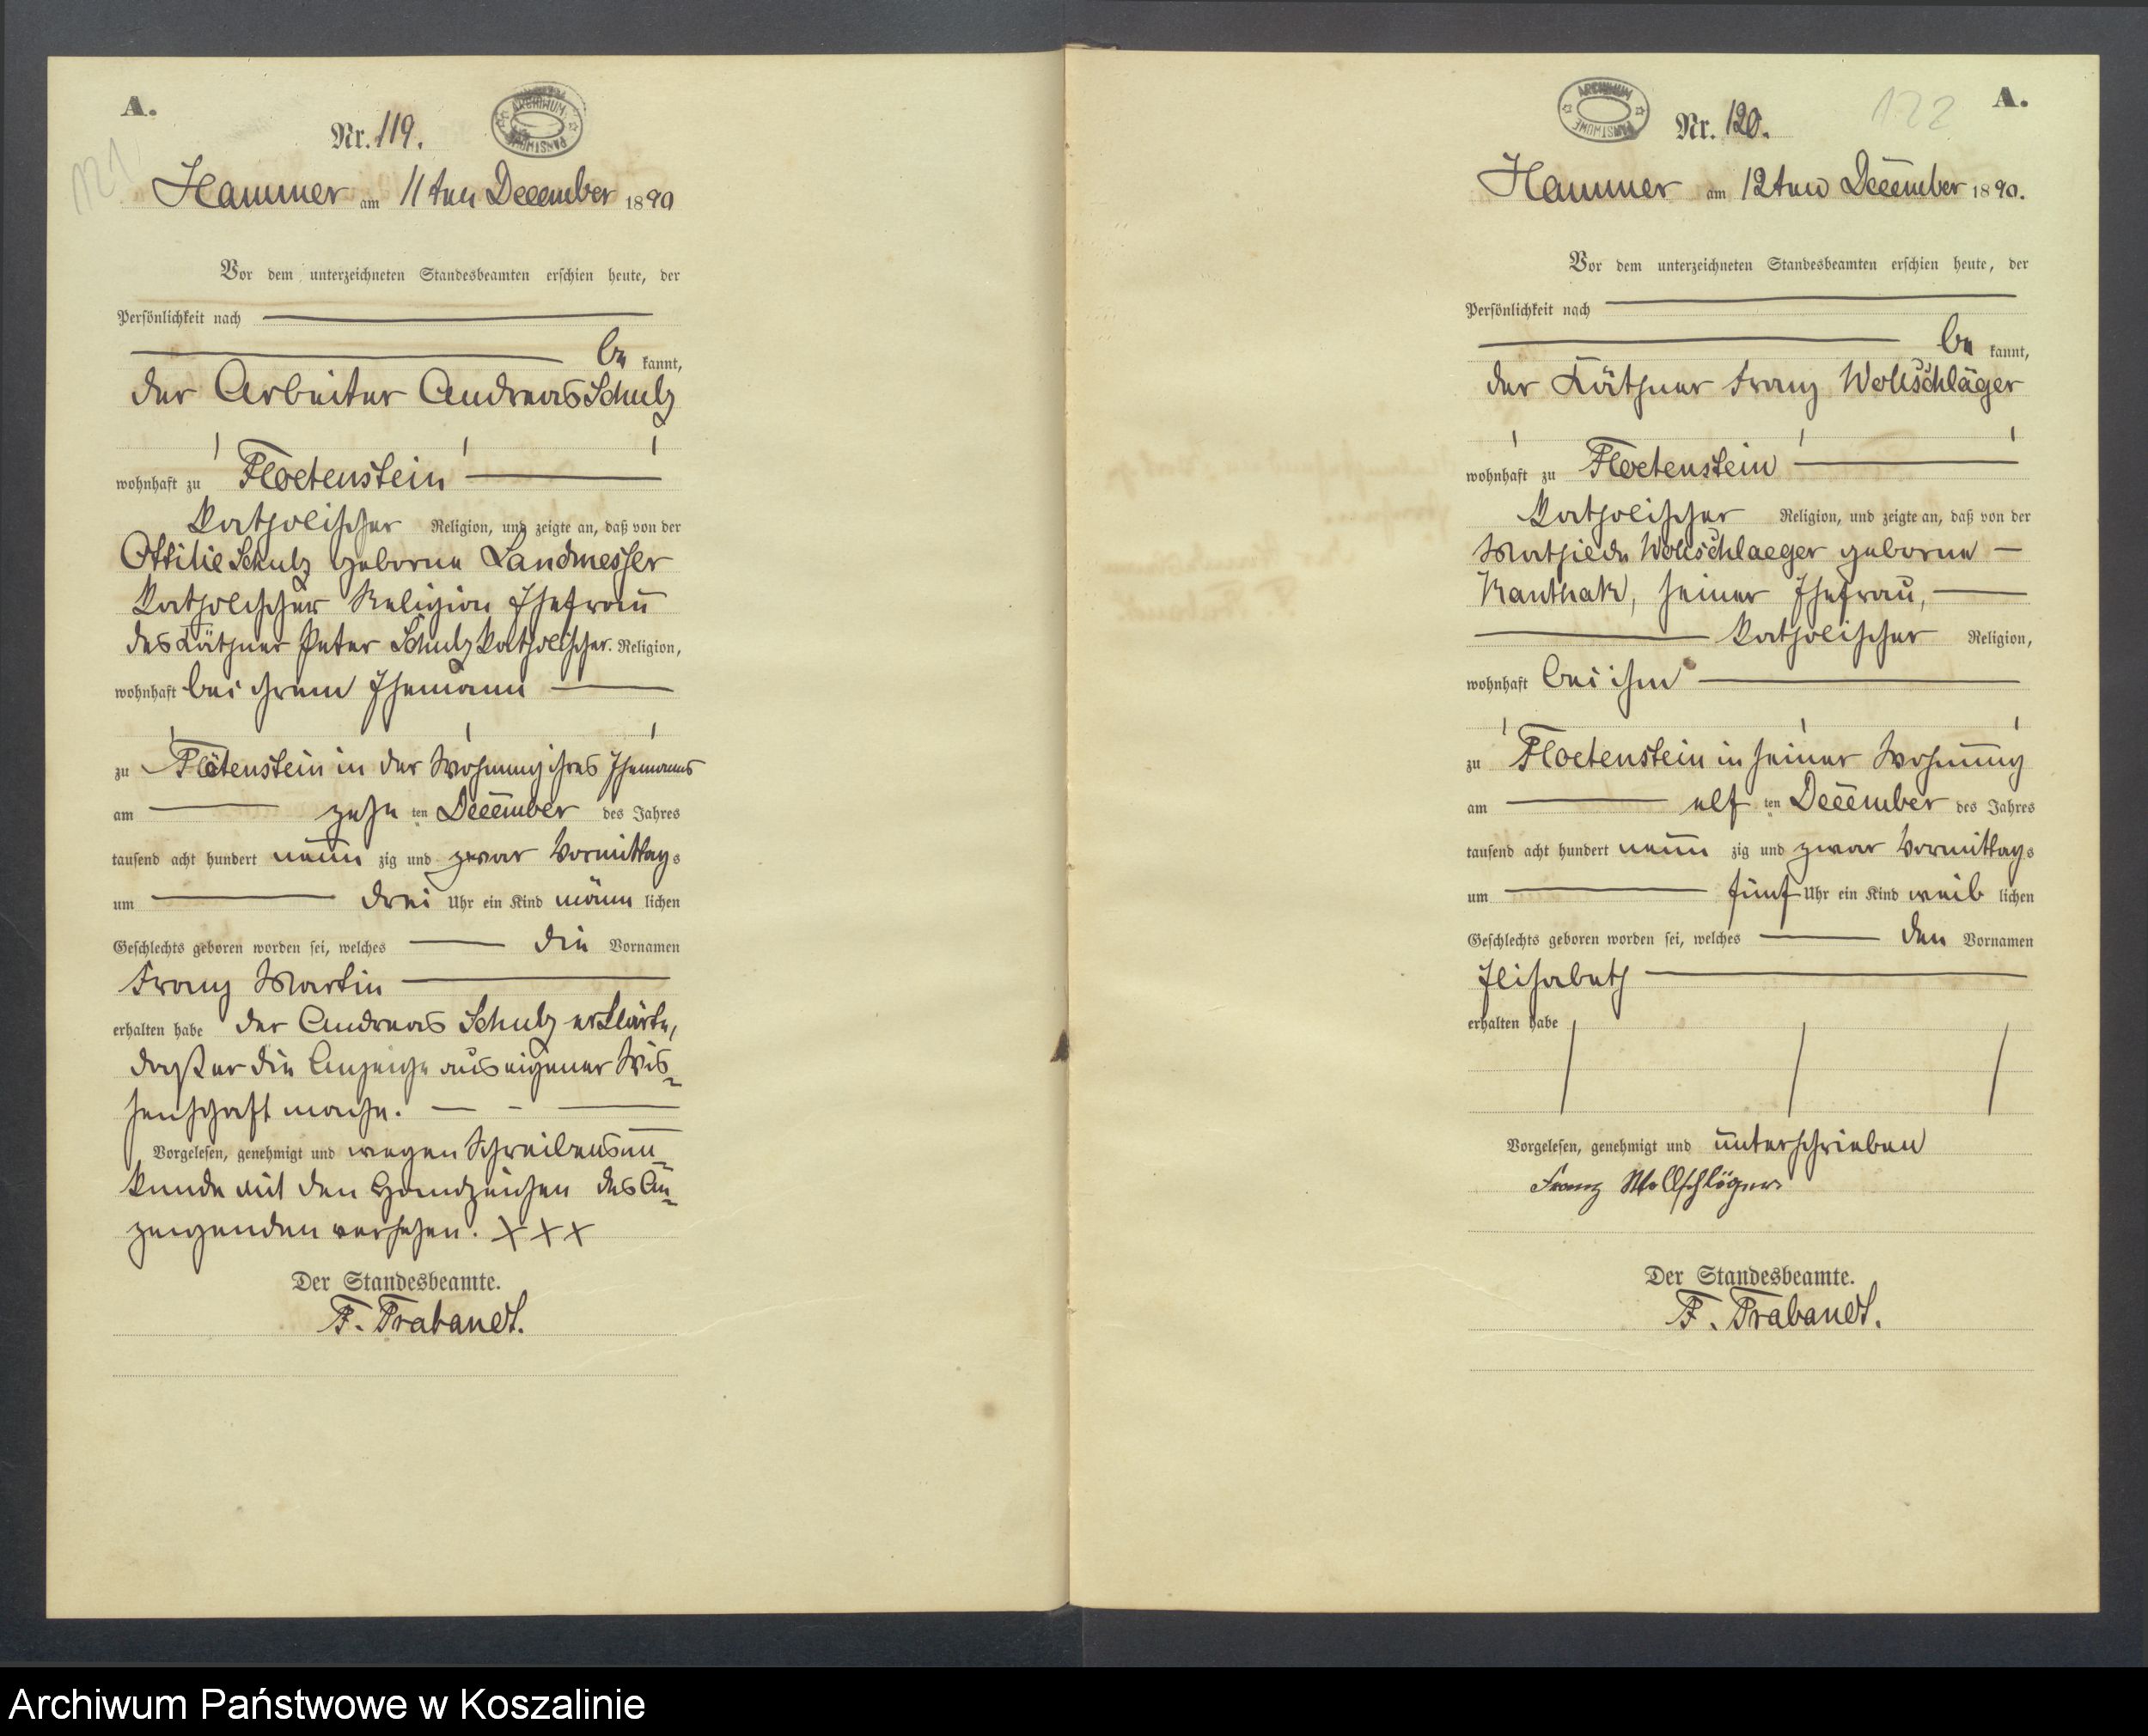 A.
121
Nr. 119.
ARCHIWUM PAŃSTWOWE
Hammer am 11ten December 1890
Vor dem unterzeichneten Standesbeamten erschien heute, der
Persönlichkeit nach
be kannt,
der Arbeiter Andreas Schulz
wohnhaft zu Floetenstein
katholischer Religion, und zeigte an, daß von der
Ottilie Schulz geborne Landmesser
katholischer Religion Ehefrau
des Käthner Peter Schulz katholischer Religion,
wohnhaft bei ihrem Ehemann
zu Flötenstein in der Wohnung ihres Ehemanns
am zehn ten December des Jahres
tausend acht hundert neun zig und zwar Vormittags
um drei Uhr ein Kind männ lichen
Geschlechts geboren worden sei, welches die Vornamen
Franz Martin
erhalten habe der Andreas Schulz erklärte,
daß er die Anzeige aus eigener Wis-
senschaft mache.
Vorgelesen, genehmigt und wegen Schreibensun-
kunde mit den Handzeichen des An-
zeigenden versehen. XXX
Der Standesbeamte.
F. Trabandt.
A.
122
Nr. 120.
ARCHIWUM PAŃSTWOWE
Hammer am 12ten December 1890.
Vor dem unterzeichneten Standesbeamten erschien heute, der
Persönlichkeit nach
be kannt,
der Käthner Franz Wollschläger
wohnhaft zu Floetenstein
katholischer Religion, und zeigte an, daß von der
Mathilde Wollschlaeger geborne
Kanthak, seiner Ehefrau,
katholischer Religion,
wohnhaft bei ihm
zu Floetenstein in seiner Wohnung
am elf ten December des Jahres
tausend acht hundert neun zig und zwar Vormittags
um fünf Uhr ein Kind weib lichen
Geschlechts geboren worden sei, welches den Vornamen
Elisabeth
erhalten habe
Vorgelesen, genehmigt und unterschrieben
Franz Wollschläger
Der Standesbeamte.
F. Trabandt.
Archiwum Państwowe w Koszalinie